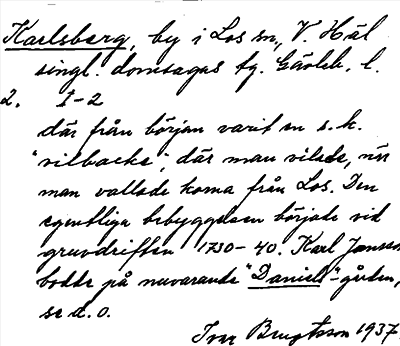 Karlsberg, by i Los sn, V. Häl
singl. domsagas tg. Gävleb. l.
2. 1-2
där från början varit en s.k.
"vilbacke", där man vilade, när
man vallade korna från Los. Den
egentliga bebyggelsen började vid
gruvdriften 1730-40. Karl Jansson
bodde på nuvarande "Daniels"-gården,
se d. o.
Ivar Bengtsson 1937.